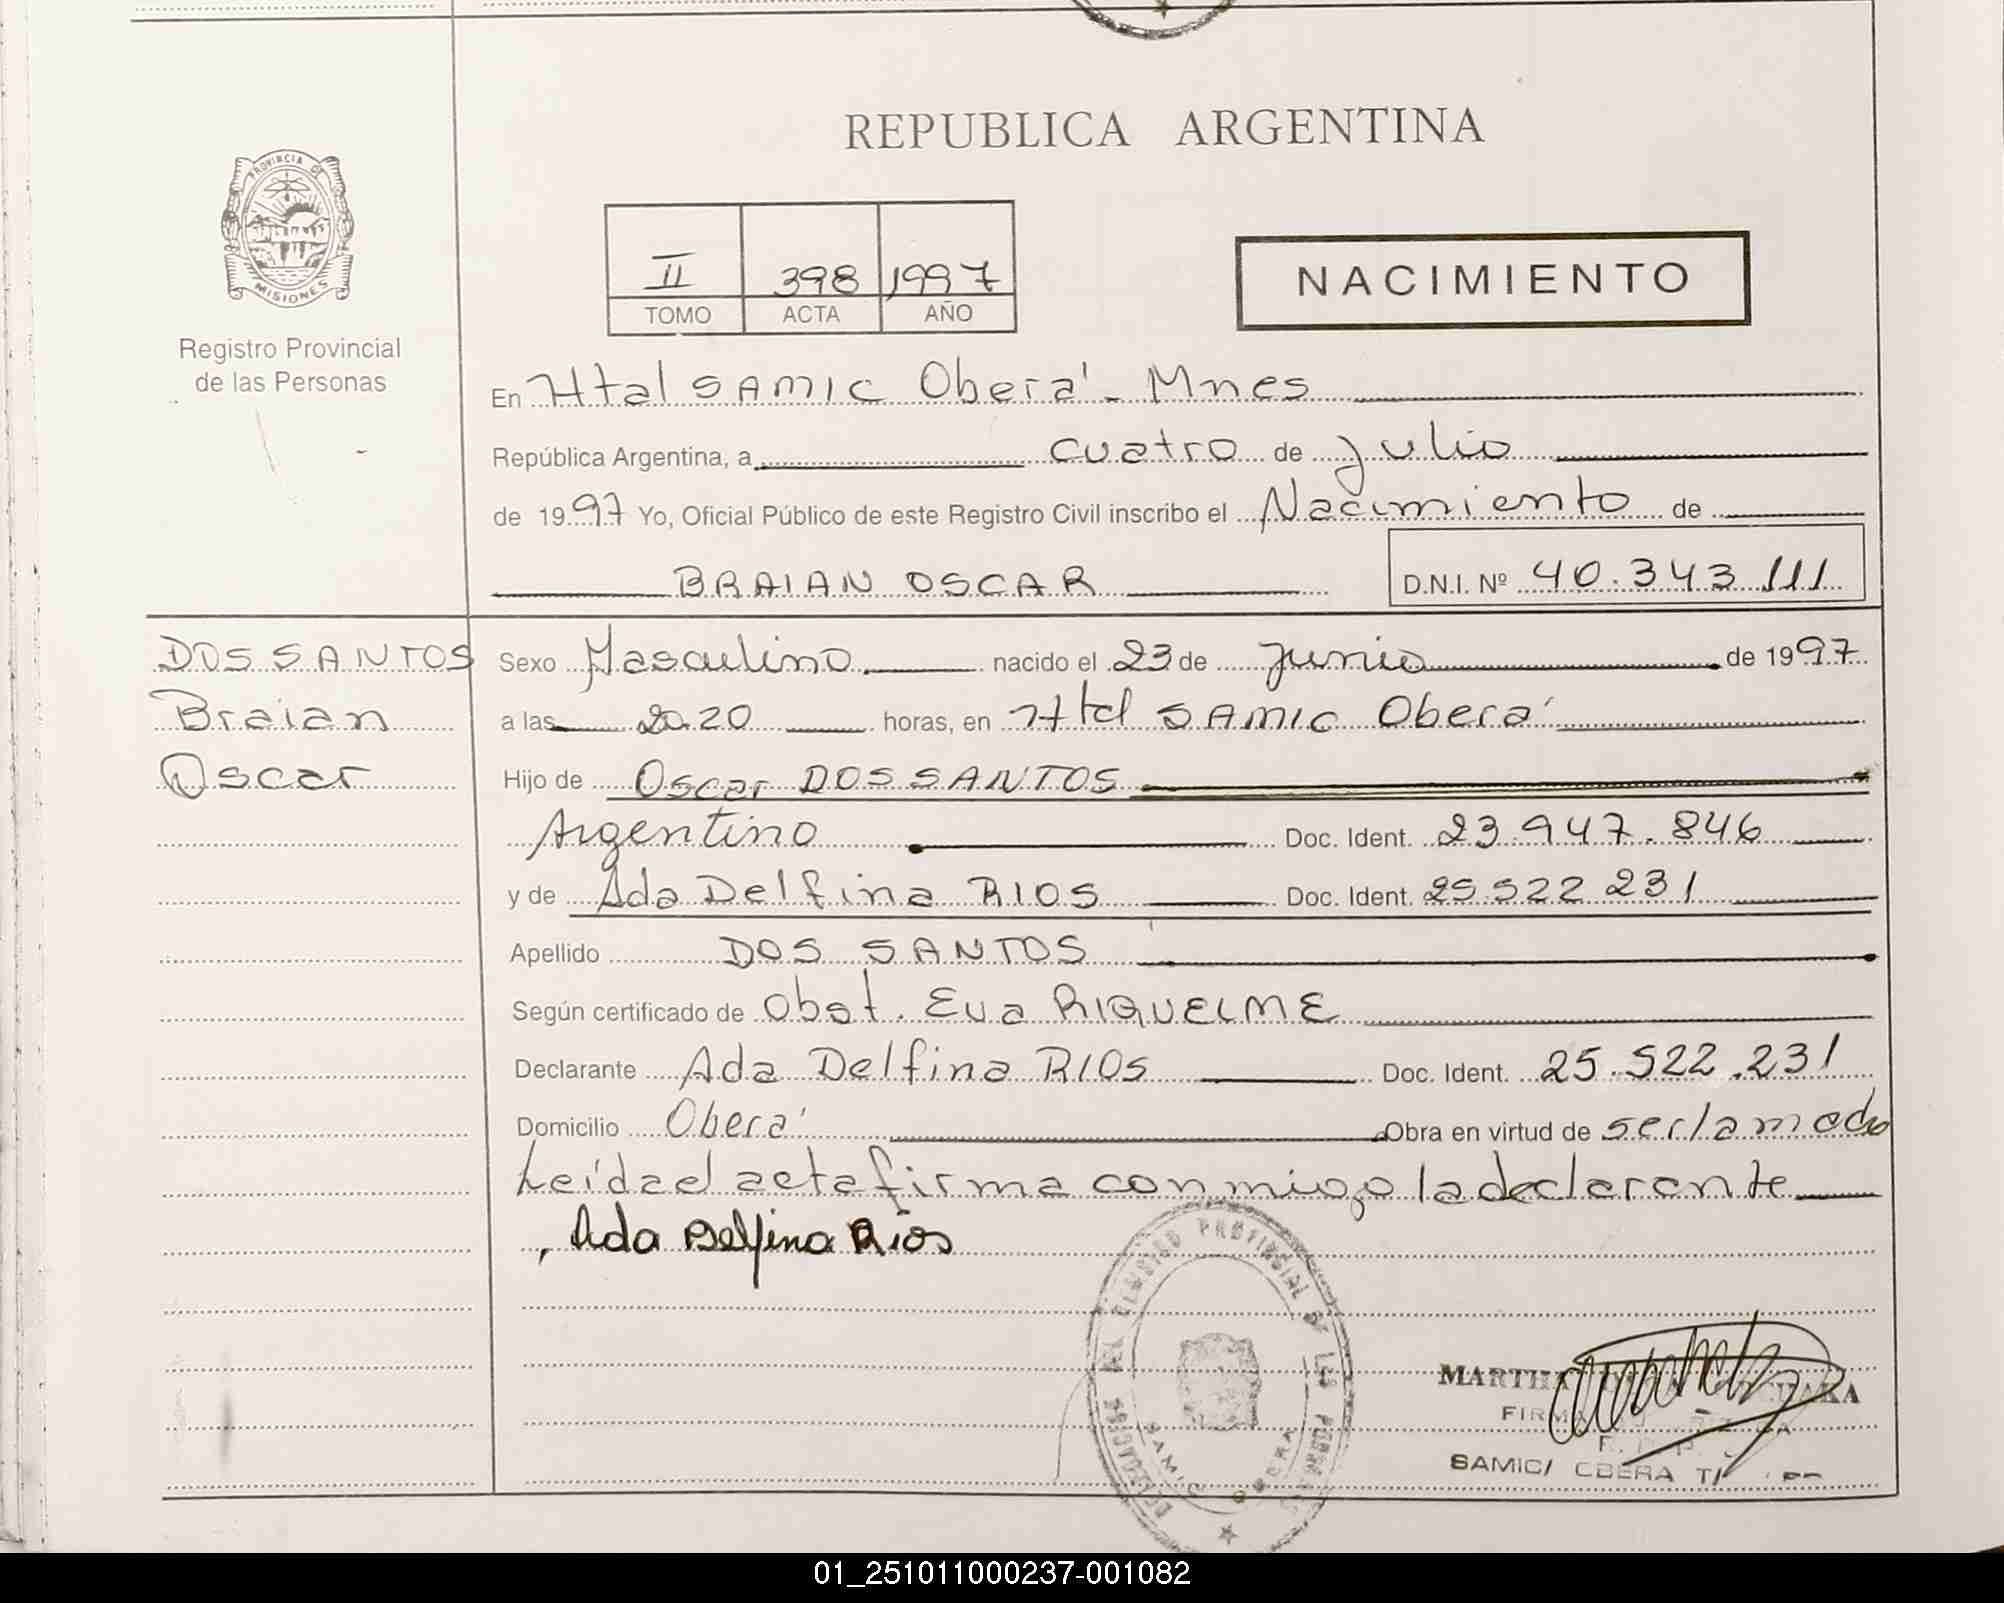 REPUBLICA ARGENTINA
PROVINCIA DE
MISIONES
Registro Provincial
de las Personas
II 398 1997
TOMO ACTA AÑO
NACIMIENTO
En Htal SAMIC Oberá - Mnes
República Argentina, a cuatro de julio
de 1997 Yo, Oficial Público de este Registro Civil inscribo el Nacimiento de
BRAIAN OSCAR D.N.I. Nº 40.343.111
DOS SANTOS
Braian
Oscar
Sexo Masculino nacido el 23 de junio de 1997
a las 20.20 horas, en Htal SAMIC Oberá
Hijo de Oscar DOS SANTOS
Argentino Doc. Ident. 23.947.846
y de Ada Delfina RIOS Doc. Ident. 25.522 231
Apellido DOS SANTOS
Según certificado de Obst. Eva RIQUELME
Declarante Ada Delfina RIOS Doc. Ident. 25.522.231
Domicilio Oberá Obra en virtud de ser la madre
Leída el acta firma conmigo la declarante
Ada Delfina Rios
PROVINCIAL DE LAS PERSONAS
SAMIC OBERA
MARTHA
SAMIC/ OBERA
01_251011000237-001082